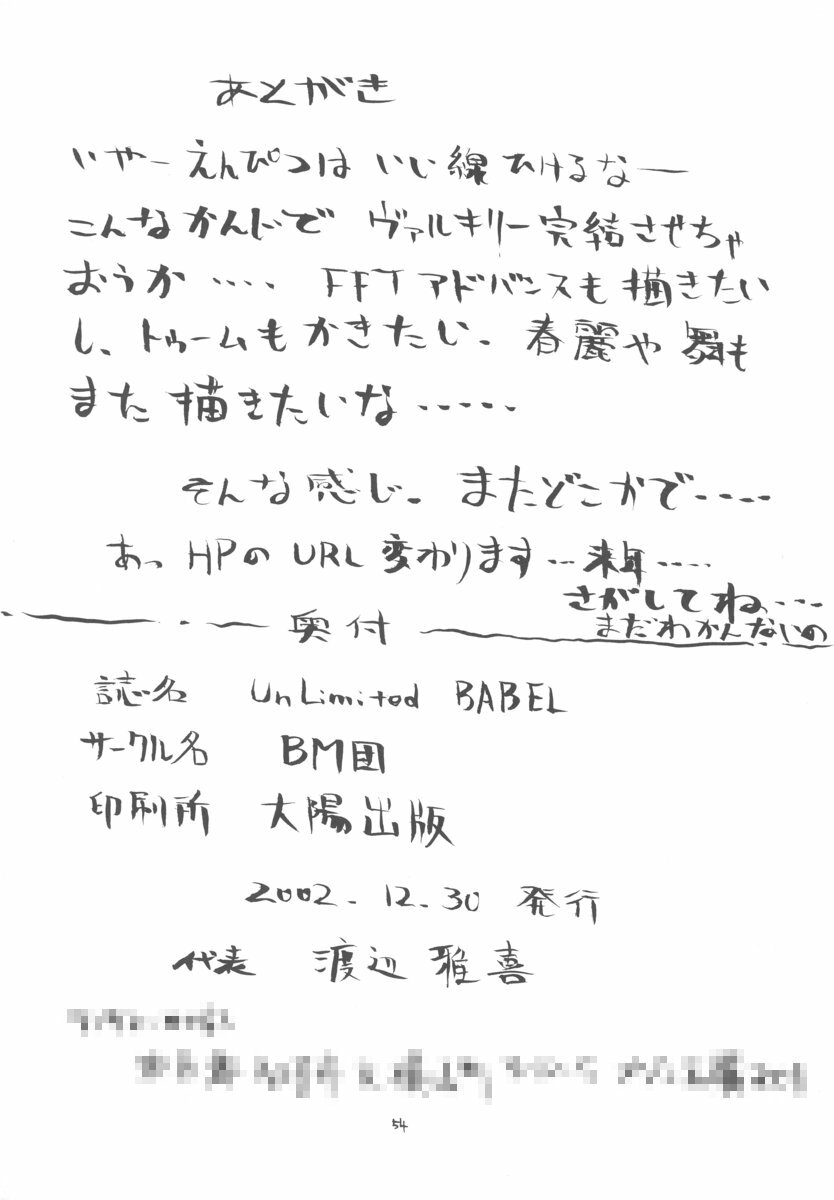 あとがき
いやーえんぴつはいい線ひけるなー
こんなかんじで ヴァルキリー完結させちゃ
おうか‥‥ FFTアドバンスも描きたい
し、トゥームもかきたい。春麗や舞も
また描きたいな‥‥‥
そんな感じ。またどこかで‥‥
あっ HPのURL変わります‥来年‥‥
さがしてね‥‥
まだわかんないの
奥付
誌名 UnLimited BABEL
サークル名 BM団
印刷所 大陽出版
2002.12.30 発行
代表 渡辺雅喜
54